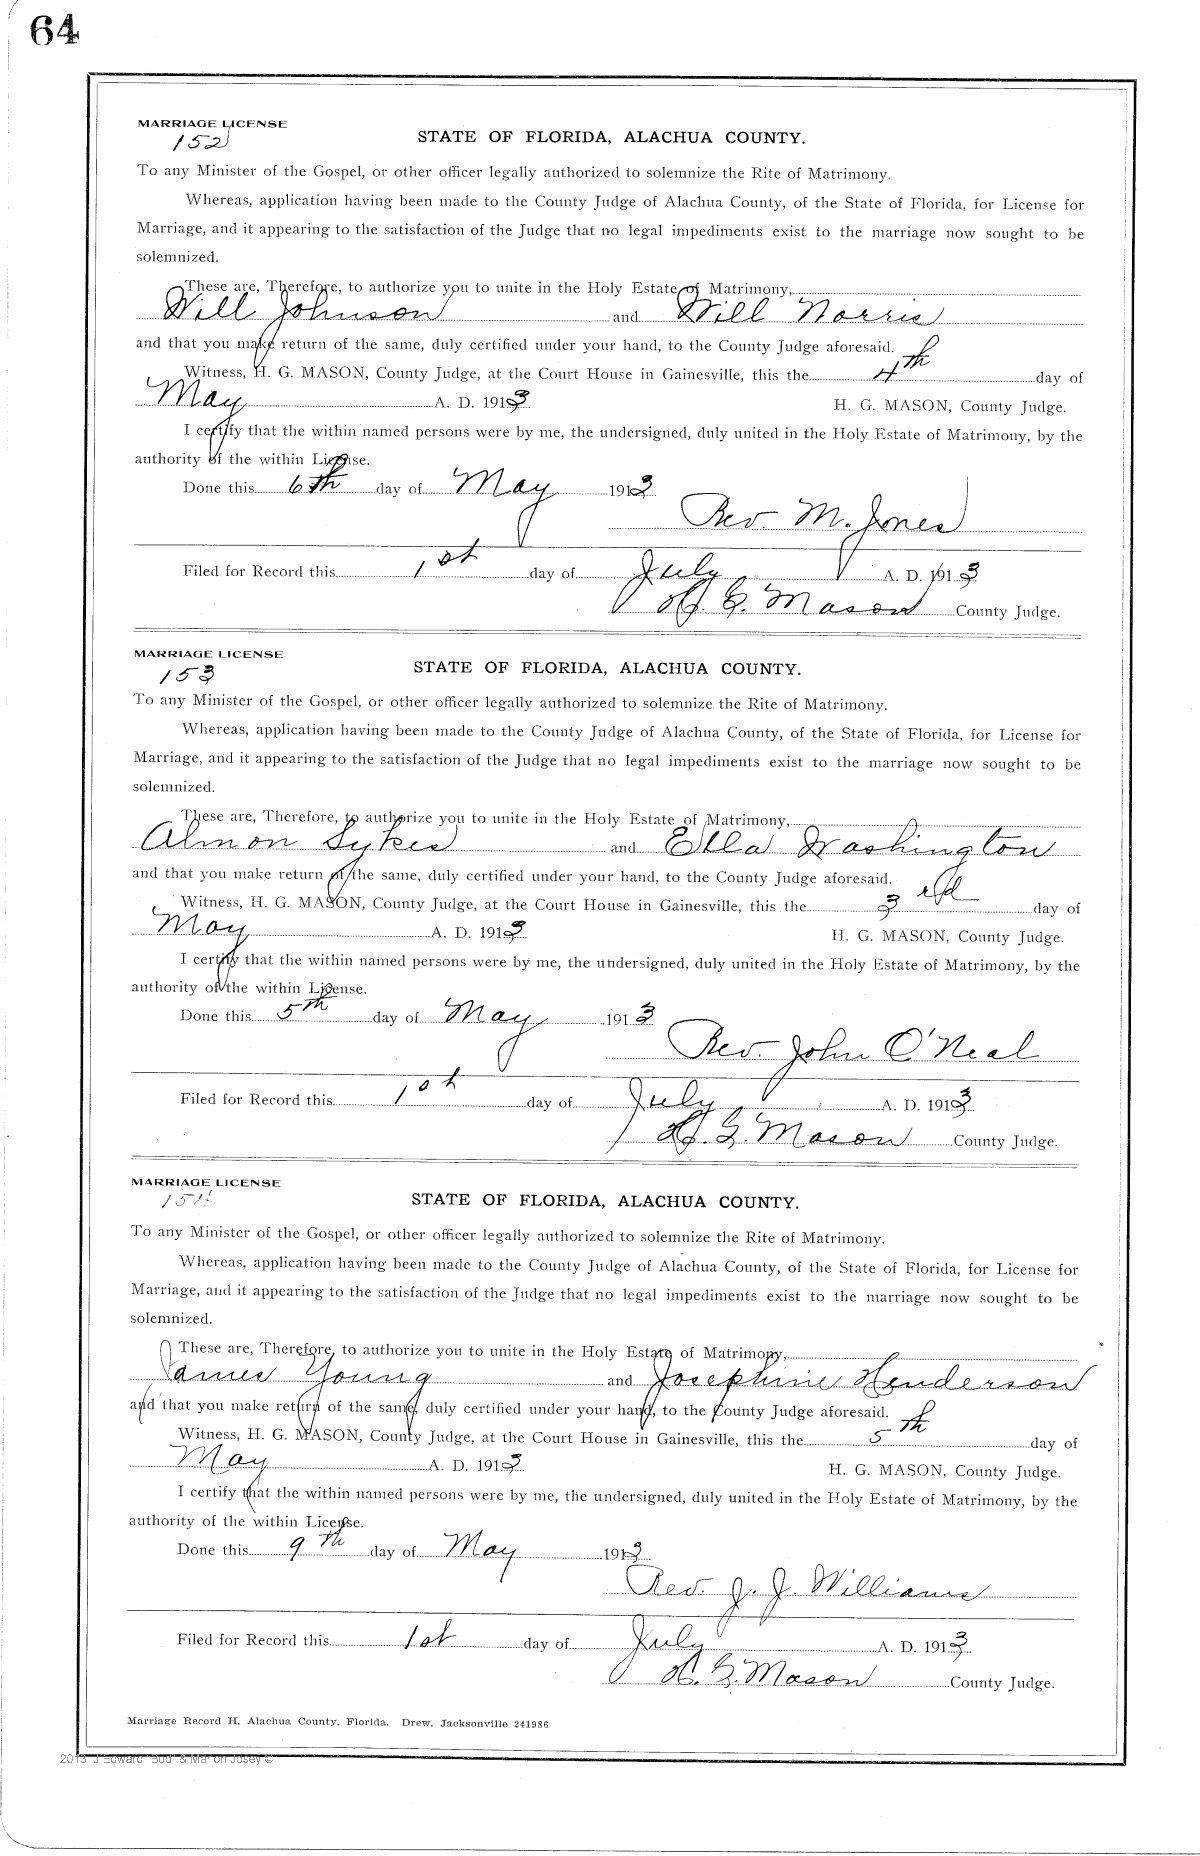 64
MARRIAGE LICENSE
152
STATE OF FLORIDA, ALACHUA COUNTY.
To any Minister of the Gospel, or other officer legally authorized to solemnize the Rite of Matrimony.
Whereas, application having been made to the County Judge of Alachua County, of the State of Florida, for License for
Marriage, and it appearing to the satisfaction of the Judge that no legal impediments exist to the marriage now sought to be
solemnized.
These are, Therefore, to authorize you to unite in the Holy Estate of Matrimony,
Will Johnson and Will Norris
and that you make return of the same, duly certified under your hand, to the County Judge aforesaid.
Witness, H. G. MASON, County Judge, at the Court House in Gainesville, this the 4th day of
May A. D. 1913 H. G. MASON, County Judge.
I certify that the within named persons were by me, the undersigned, duly united in the Holy Estate of Matrimony, by the
authority of the within License.
Done this 6th day of May 1913
Rev. M. Jones
Filed for Record this 1st day of July A. D. 1913
H. G. Mason County Judge.
MARRIAGE LICENSE
153
STATE OF FLORIDA, ALACHUA COUNTY.
To any Minister of the Gospel, or other officer legally authorized to solemnize the Rite of Matrimony.
Whereas, application having been made to the County Judge of Alachua County, of the State of Florida, for License for
Marriage, and it appearing to the satisfaction of the Judge that no legal impediments exist to the marriage now sought to be
solemnized.
These are, Therefore, to authorize you to unite in the Holy Estate of Matrimony,
Almon Sykes and Ella Washington
and that you make return of the same, duly certified under your hand, to the County Judge aforesaid.
Witness, H. G. MASON, County Judge, at the Court House in Gainesville, this the 3rd day of
May A. D. 1913 H. G. MASON, County Judge.
I certify that the within named persons were by me, the undersigned, duly united in the Holy Estate of Matrimony, by the
authority of the within License.
Done this 5th day of May 1913
Rev. John O'Neal
Filed for Record this 1st day of July A. D. 1913
H. G. Mason County Judge.
MARRIAGE LICENSE
154
STATE OF FLORIDA, ALACHUA COUNTY.
To any Minister of the Gospel, or other officer legally authorized to solemnize the Rite of Matrimony.
Whereas, application having been made to the County Judge of Alachua County, of the State of Florida, for License for
Marriage, and it appearing to the satisfaction of the Judge that no legal impediments exist to the marriage now sought to be
solemnized.
These are, Therefore, to authorize you to unite in the Holy Estate of Matrimony,
James Young and Josephine Henderson
and that you make return of the same, duly certified under your hand, to the County Judge aforesaid.
Witness, H. G. MASON, County Judge, at the Court House in Gainesville, this the 5th day of
May A. D. 1913 H. G. MASON, County Judge.
I certify that the within named persons were by me, the undersigned, duly united in the Holy Estate of Matrimony, by the
authority of the within License.
Done this 9th day of May 1913
Rev. J. J. Williams
Filed for Record this 1st day of July A. D. 1913
H. G. Mason County Judge.
Marriage Record H, Alachua County, Florida. Drew, Jacksonville 241986
Edward Josey ©